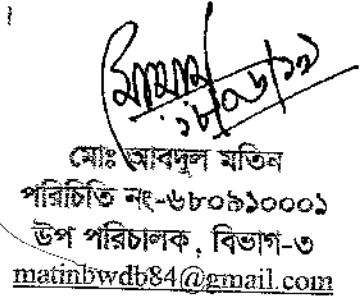 ১৮/০৬/১৭
মোঃ আবদুল মতিন
পরিচিতি নং-৬৮০৯১০০০১
উপ পরিচালক, বিভাগ-৩
matinbwdb84@gmail.com